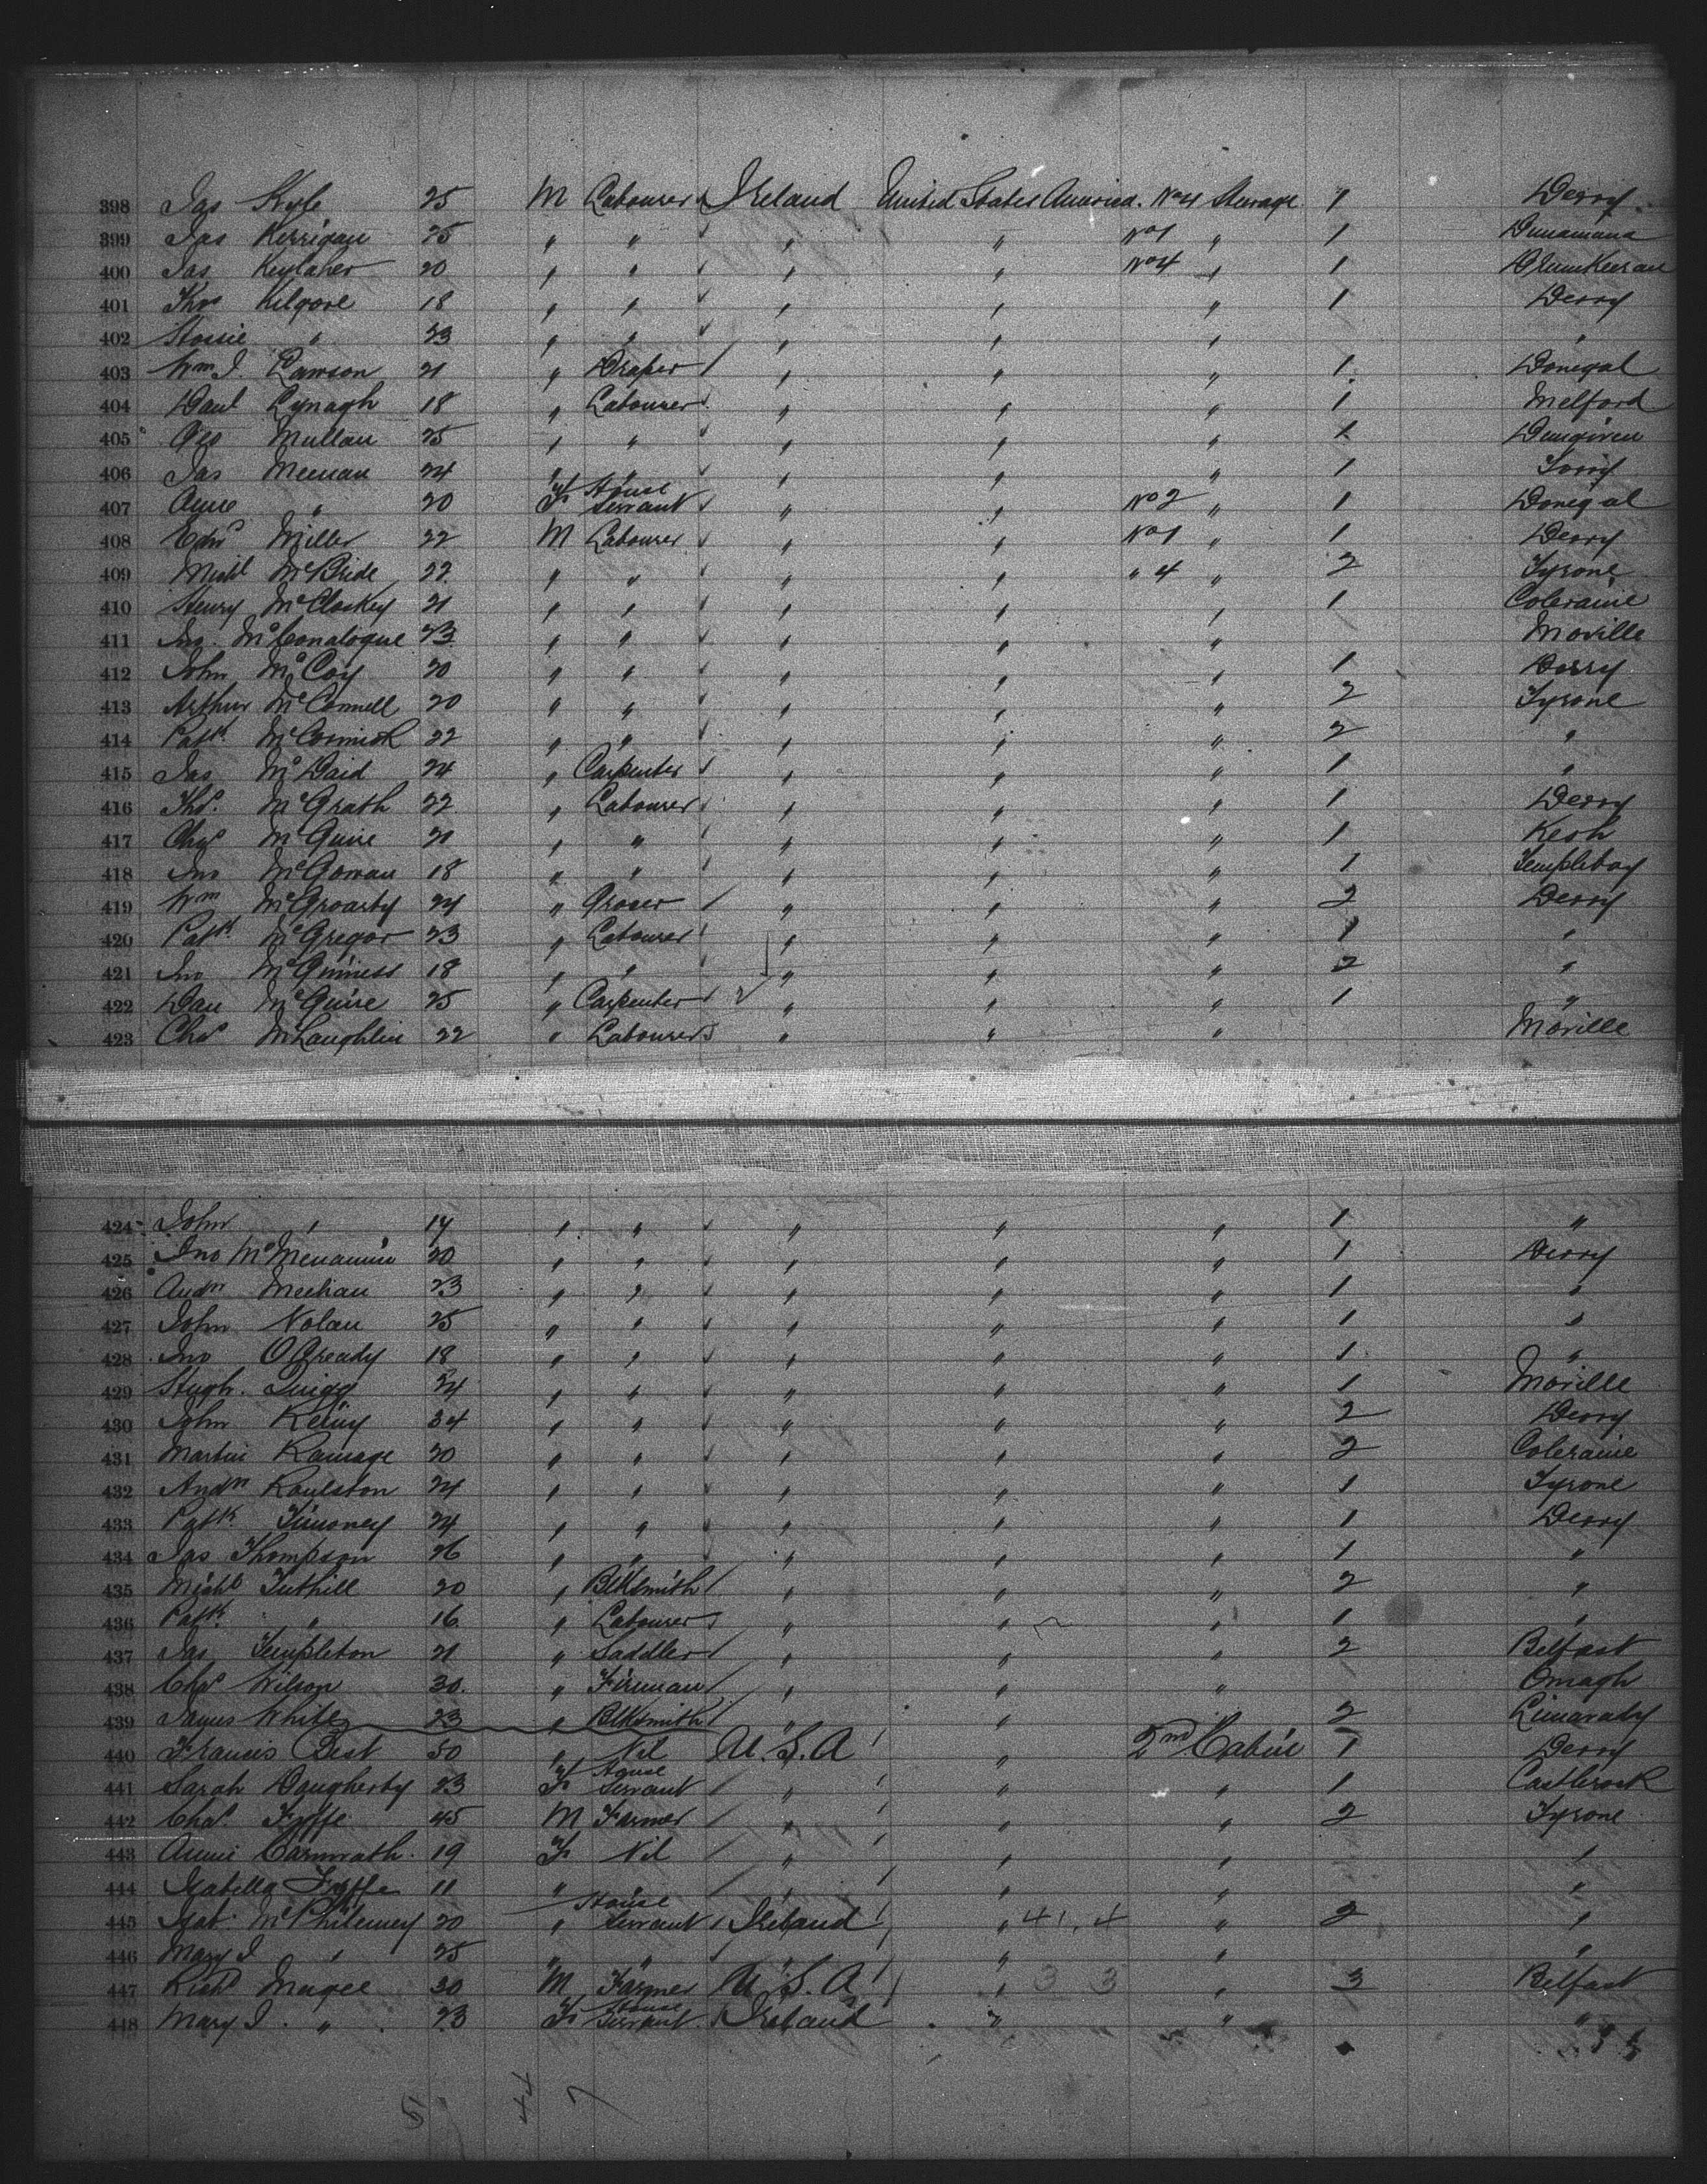 398 Jas Kyle 25 M Labourer Ireland United States America. No 4 Steerage 1 Derry
399 Jas Kerrigan 25 " " " " No 1 " 1 Dunamana
400 Jas 20 " " " " No 4 " 1 Drumkeeran
401 Thos Kilgore 18 " " " " " 1 Derry
402 " 23 " " " " " "
403 Wm J. Lawson 21 " Draper " " " 1 Donegal
404 Danl Lynagh 18 " Labourer " " " 1 Melford
405 Geo Mullan 25 " " " " " 1 Dungiven
406 Jas Meenan 24 " " " " " 1 Torry
407 Anne " 20 F House Servant " " No 2 " 1 Donegal
408 Edwd Miller 22 M Labourer " " No 1 " 1 Derry
409 Michl McBride 22 " " " " " 4 " 2 Tyrone
410 Henry McCloskey 21 " " " " " 1 Coleraine
411 Jno. McConalogue 23 " " " " " Moville
412 John McCoy 20 " " " " " 1 Derry
413 Arthur McConnell 20 " " " " " 2 Tyrone
414 Patk McCormick 22 " " " " " 2 "
415 Jas McDaid 24 " Carpenter " " " 1 "
416 Thos. McGrath 22 " Labourer " " " 1 Derry
417 Chas McGuire 21 " " " " " 1 Kesh
418 Jno McGowan 18 " " " " " 1 Templeboy
419 Wm McGroarty 24 " Grocer " " " 2 Derry
420 Patk McGregor 23 " Labourer " " " 1 "
421 Jno McGinness 18 " " " " " 2 "
422 Dan McGuire 25 " Carpenter " " " 1 "
423 Chas McLaughlin 22 " Labourer " " " Moville
424 John " 17 " " " " " 1 "
425 Jno McMenamin 20 " " " " " 1 Derry
426 Andw Meehan 23 " " " " " 1 "
427 John Nolan 25 " " " " " 1 "
428 Jno 18 " " " " " 1 "
429 Hugh. Quigg 24 " " " " " 1 Moville
430 John 34 " " " " " 2 Derry
431 Martin Ramage 20 " " " " " 2 Coleraine
432 Andw Roulston 24 " " " " " 1 Tyrone
433 Patk Timoney 24 " " " " " 1 Derry
434 Jas Thompson 26 " " " " " 1 "
435 Michl Tuthill 20 " Blksmith " " " 2 "
436 Patk " 16 " Labourer " " " 1 "
437 Jas Templeton 21 " Saddler " " " 2 Belfast
438 Chas Wilson 30. " Fireman " " " Omagh
439 James White 23 " Blksmith " " 2 Limavady
440 Francis Best 50 " Nil U.S.A " 2nd Cabin 1 Derry
441 Sarah Daugherty 23 F House Servant " " " 1 Castlerock
442 Chas. Fyffe 45 M Farmer " " " 2 Tyrone
443 Annie Carnwath 19 F Nil " " " "
444 Isabella Fyffe 11 " " " " " "
445 Isab. McPhilemey 20 " House Servant Ireland " 41, 4 " 2 "
446 Mary J " 25 " " " " " "
447 Richd Magee 30 M Farmer U.S.A " 3 3 " 3 Belfast
448 Mary J. " 23 F House Servant Ireland " " "
44